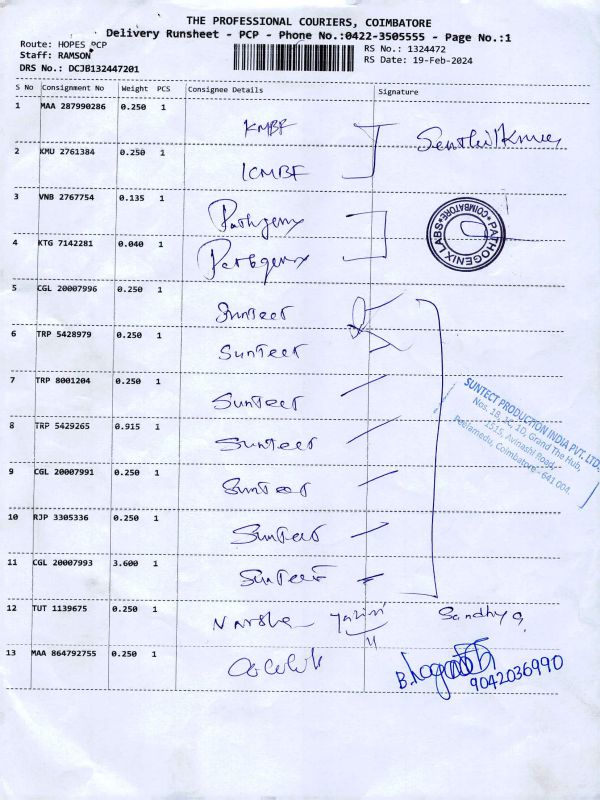 THE PROFESSIONAL COURIERS, COIMBATORE
Delivery Runsheet - PCP - Phone No.:0422-3505555 - Page No.:1
Route: HOPES PCP
Staff: RAMSON
DRS No.: DCJB132447201
RS No.: 1324472
RS Date: 19-Feb-2024
S No Consignment No Weight PCS Consignee Details Signature
1 MAA 287990286 0.250 1 KMBF
2 KMU 2761384 0.250 1 KMBF
3 VNB 2767754 0.135 1
4 KTG 7142281 0.040 1
PATHOGENIX LABS
*COIMBATORE*
5 CGL 20007996 0.250 1 Suntect
6 TRP 5428979 0.250 1 Suntect
7 TRP 8001204 0.250 1 Suntect
8 TRP 5429265 0.915 1 Suntect
9 CGL 20007991 0.250 1 Suntect
10 RJP 3305336 0.250 1 Suntect
11 CGL 20007993 3.600 1 Suntect
SUNTECT PRODUCTION INDIA PVT. LTD.
Nos. 1B, 1C, 1D, Grand The Hub,
1515, Avinashi Road,
Peelamedu, Coimbatore - 641 004.
12 TUT 1139675 0.250 1 Sandhya
13 MAA 864792755 0.250 1
9042036990